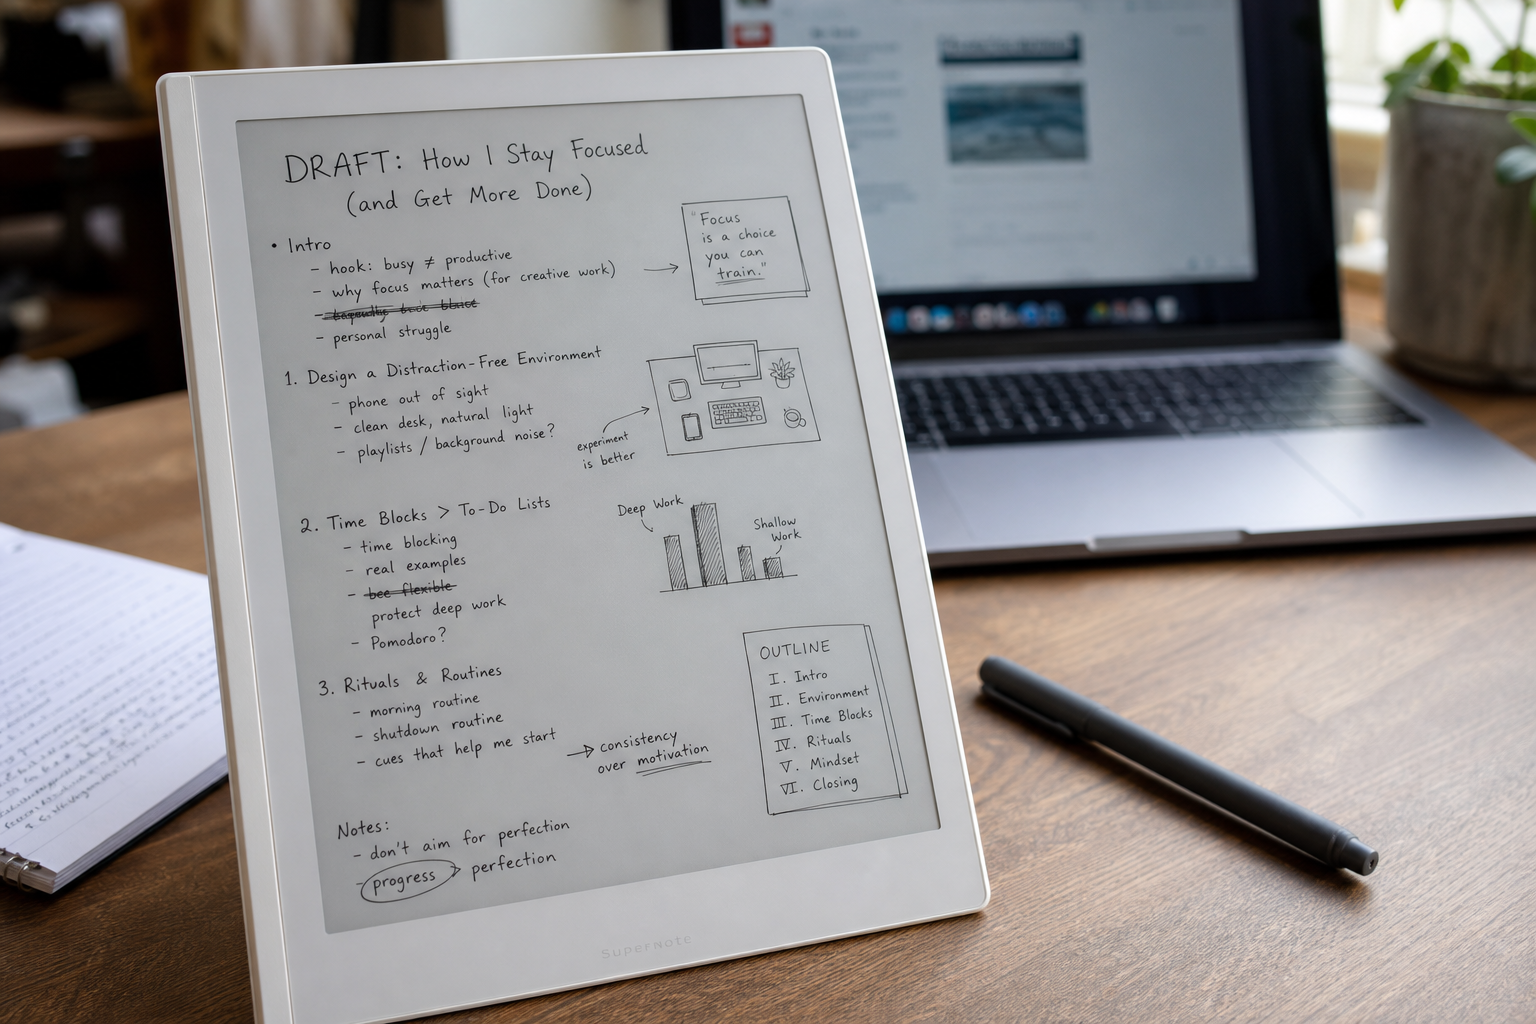 DRAFT: How I Stay Focused
(and Get More Done)
• Intro
- hook: busy ≠ productive
- why focus matters (for creative work)
-
- personal struggle
"Focus
is a choice
you can
train."
1. Design a Distraction-Free Environment
- phone out of sight
- clean desk, natural light
- playlists / background noise?
experiment
is better
2. Time Blocks > To-Do Lists
- time blocking
- real examples
- bee flexible
protect deep work
- Pomodoro?
Deep Work
Shallow
Work
3. Rituals & Routines
- morning routine
- shutdown routine
- cues that help me start
→ consistency
over motivation
OUTLINE
I. Intro
II. Environment
III. Time Blocks
IV. Rituals
V. Mindset
VI. Closing
Notes:
- don't aim for perfection
- progress > perfection
SUPERNOTE